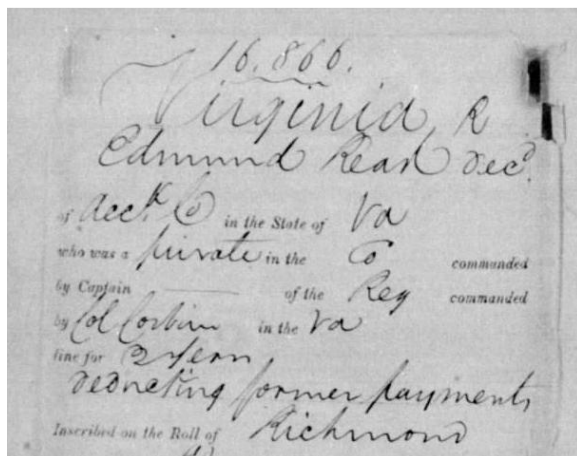 16.866.
Virginia, R
Edmund Read Decd.
of Acck. Co in the State of Va
who was a private in the Co commanded
by Captain —— of the Reg commanded
by Col Corbin in the Va
line for 2 Years
deducting former payments
Inscribed on the Roll of Richmond